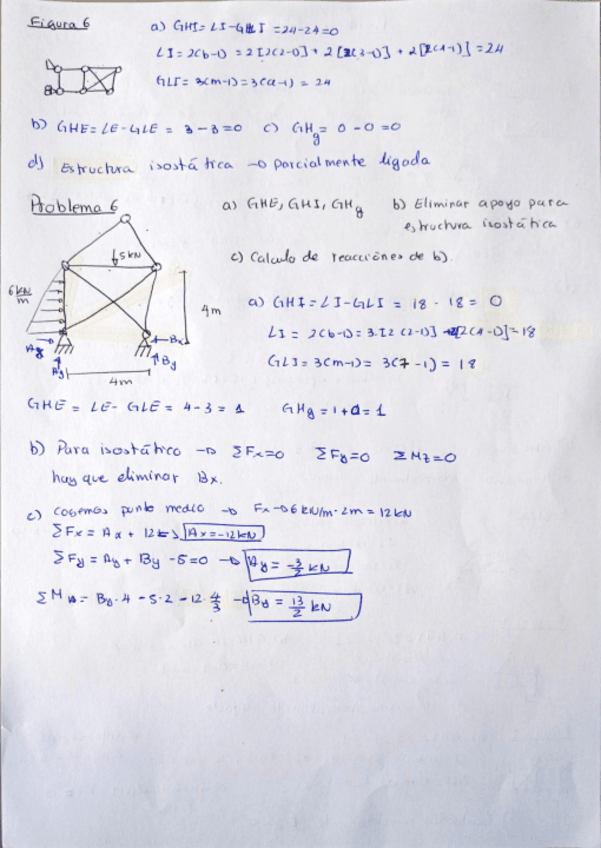 Figura 6
a) GHI = LI - GLI = 24 - 24 = 0
LI = 2(b-1) = 2[2(2-1)] + 2[2(3-1)] + 2[2(4-1)] = 24
GLI = 3(m-1) = 3(9-1) = 24
b) GHE = LE - GLE = 3 - 3 = 0 c) GHg = 0 - 0 = 0
d) Estructura isostática → parcialmente ligada
Problema 6
a) GHE, GHI, GHg b) Eliminar apoyo para
estructura isostática
c) Calculo de reacciones de b).
5 kN
6 kN/m
4m
a) GHI = LI - GLI = 18 - 18 = 0
LI = 2(b-1) = 3·[2(2-1)] + 2[2(4-1)] = 18
GLI = 3(m-1) = 3(7-1) = 18
Bx
Ay
By
4m
GHE = LE - GLE = 4 - 3 = 1 GHg = 1 + 0 = 1
b) Para isostático → ΣFx=0 ΣFy=0 ΣMz=0
hay que eliminar Bx.
c) cogemos punto medio → Fx → 6 kN/m · 2m = 12 kN
ΣFx = Ax + 12 Ax = -12 kN
ΣFy = Ay + By - 5 = 0 → Ay = -3/2 kN
ΣMA = By · 4 - 5 · 2 - 12 · 4/3 → By = 13/2 kN